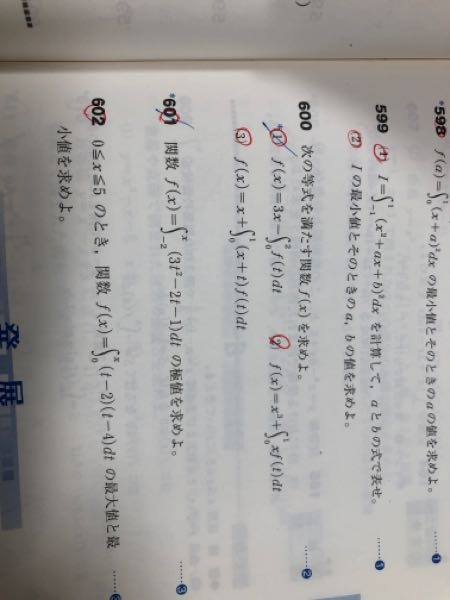 *598 f(a)=∫₀¹(x+a)²dx の最小値とそのときのaの値を求めよ。 ……❶
599 (1) I=∫₋₁¹(x²+ax+b)²dx を計算して，aとbの式で表せ。 ……❶
(2) Iの最小値とそのときのa，bの値を求めよ。
600 次の等式を満たす関数f(x)を求めよ。 ……❷
*(1) f(x)=3x−∫₀²f(t)dt (2) f(x)=x³+∫₀¹xf(t)dt
(3) f(x)=x+∫₀¹(x+t)f(t)dt
*601 関数 f(x)=∫₋₂ˣ(3t²−2t−1)dt の極値を求めよ。 ……❸
602 0≦x≦5 のとき，関数 f(x)=∫₀ˣ(t−2)(t−4)dt の最大値と最
小値を求めよ。
発展